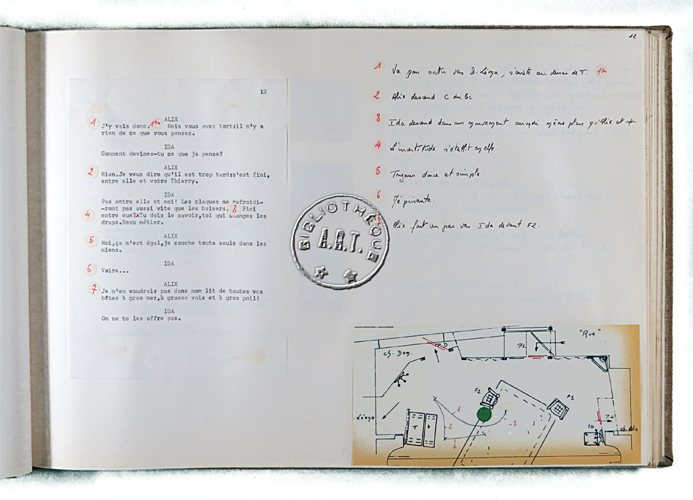 12
12
ALIX
1 J'y vais donc. 1bis Mais vous avez tort:il n'y a
rien de ce que vous pensez.
IDA
Comment devines-tu ce que je pense?
ALIX
2 Rien.Je veux dire qu'il est trop tard:c'est fini,
entre elle et votre Thierry.
IDA
Pas entre elle et moi! Les claques ne refroidi-
-ront pas aussi vite que les baisers. 3 Fini
4 entre eux? Tu dois le savoir,toi qui changes les
draps.Beau métier.
ALIX
5 Moi,ça n'est égal,je couche toute seule dans les
miens.
IDA
6 Voire...
ALIX
7 Je n'en voudrais pas dans mon lit de toutes vos
bêtes à gros nez,à grosse voix et à gros poil!
IDA
On ne te les offre pas.
BIBLIOTHÈQUE
A.R.T.
1 Va pour sortir vers D. Léoga, s'arrête au dessus de T. 1bis
2 Alix descend C du Sc
3 Ida descend dans un mouvement
4 s'établit
5 Toujours douce et simple
6
Alix fait un pas vers Ida devant F2.
"Rue"
ch. Dag
Léoga
F2
F1
T